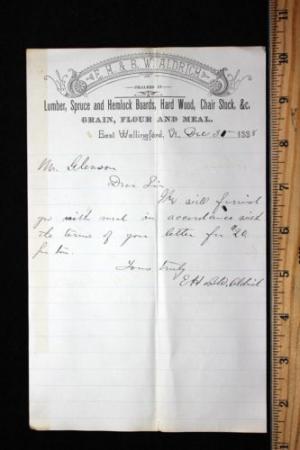 E. H. & B. W. ALDRICH
DEALERS IN
Lumber, Spruce and Hemlock Boards, Hard Wood, Chair Stock, &c.
GRAIN, FLOUR AND MEAL.
East Wallingford, Vt. Dec 31 1888
Mr. Gleason
Dear Sir
We will furnish
you with meal in accordance with
the terms of your letter for $20.
per ton.
Yours truly
E H & B W. Aldrich